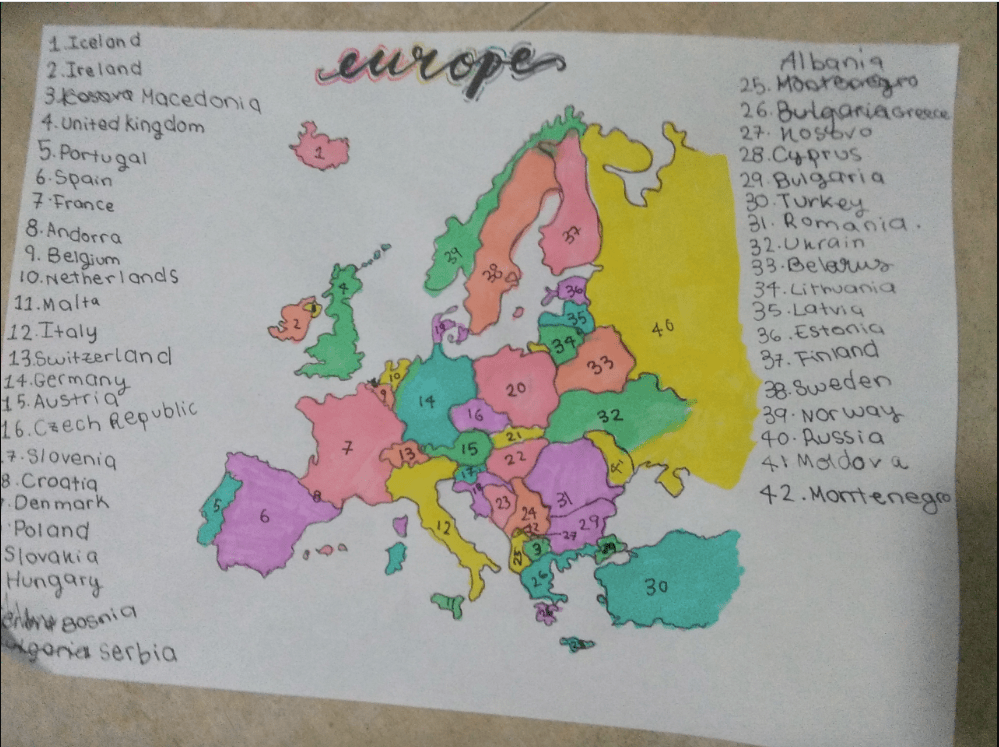 europe
1.Iceland
2.Ireland
3.Kosova Macedonia
4.united kingdom
5.Portugal
6.Spain
7.France
8.Andorra
9.Belgium
10.Netherlands
11.Malta
12.Italy
13.Switzerland
14.Germany
15.Austria
16.Czech Republic
7.Slovenia
8.Croatia
.Denmark
Poland
Slovania
Hungary
Bosnia
Serbia
Albania
25.Montenegro
26.Bulgaria Greece
27.Kosovo
28.Cyprus
29.Bulgaria
30.Turkey
31.Romania.
32.Ukrain
33.Belarus
34.Lithuania
35.Latvia
36.Estonia
37.Finland
38.Sweden
39.Norway
40.Russia
41 Moldova
42.Montenegro
1
39
38
37
4
2
36
35
40
34
33
10
9
14
20
16
32
7
13
15
21
22
17
5
6
8
12
23
24
31
29
27
3
26
30
11